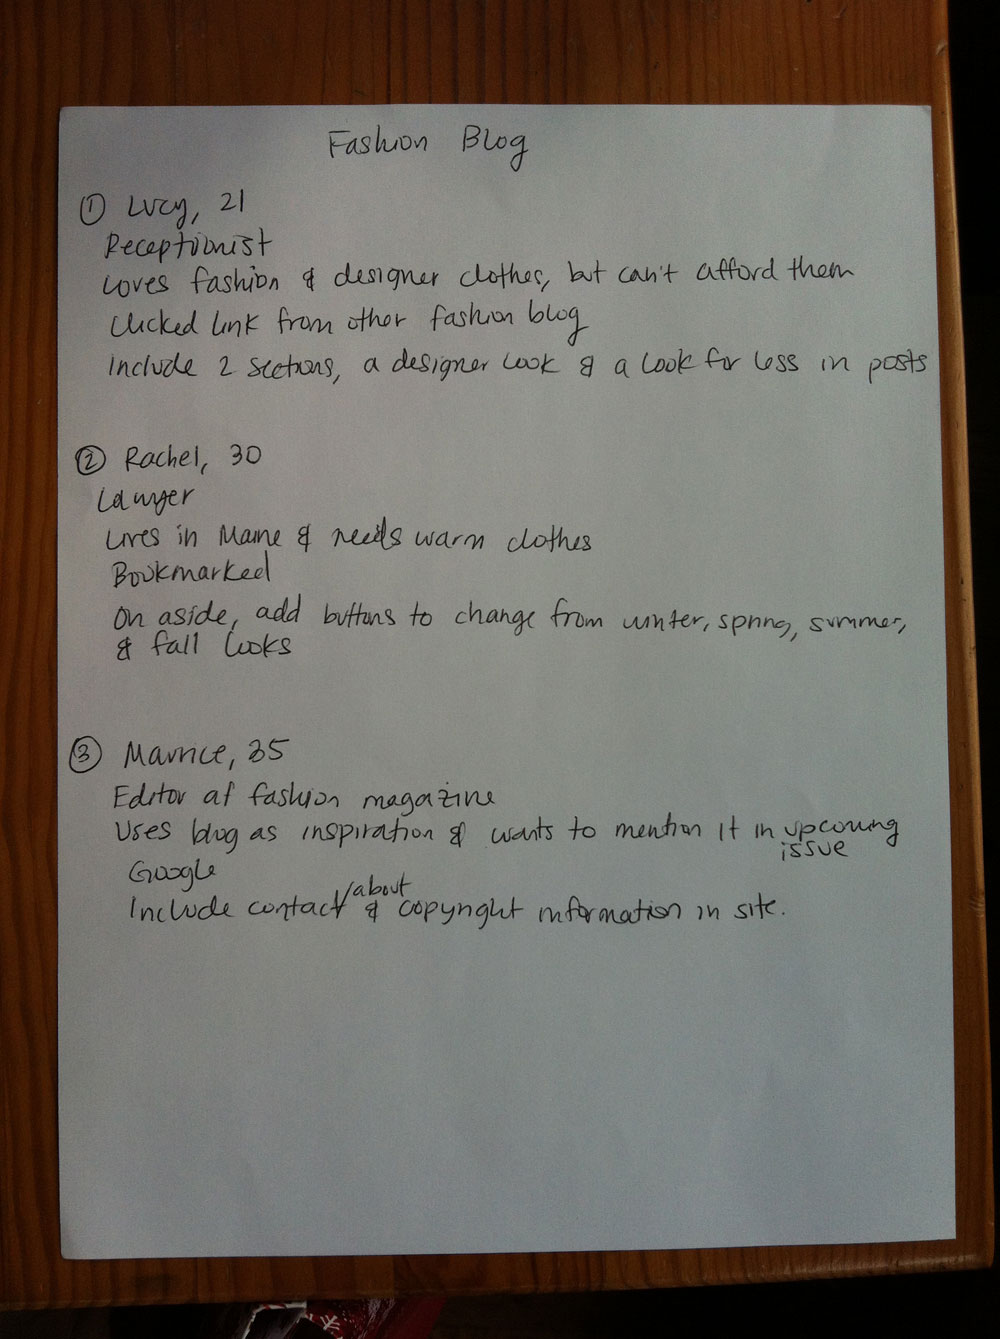 Fashion Blog
① Lucy, 21
Receptionist
Loves fashion & designer clothes, but can't afford them
Clicked link from other fashion blog
Include 2 sections, a designer look & a look for less in posts
② Rachel, 30
Lawyer
Lives in Maine & needs warm clothes
Bookmarked
On aside, add buttons to change from winter, spring, summer,
& fall looks
③ Maurice, 35
Editor of fashion magazine
Uses blog as inspiration & wants to mention it in upcoming
issue
Google
Include contact/about & copyright information in site.